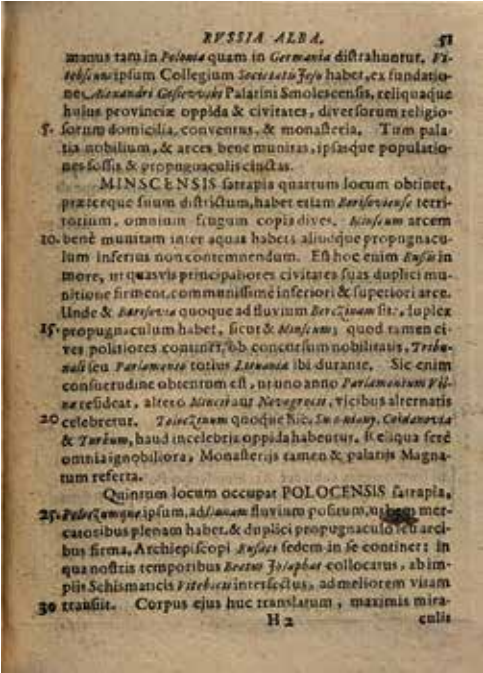 RVSSIA ALBA. 51
manus tam in Polonia quam in Germania distrahuntur. Vi-
tebscum ipsum Collegium Societatis Jesu habet, ex fundatio-
ne Alexandri Gosievvski Palatini Smolescensis, reliquaque
huius provinciæ oppida & civitates, diversorum religio-
5. sorum domicilia, conventus, & monasteria. Tum pala-
tia nobilium, & arces bene munitas, ipsasque populatio-
nes fossis & propugnaculis cinctas.
MINSCENSIS satrapia quartum locum obtinet,
præterque suum districtum, habet etiam Borisoviense terri-
torium, omnium frugum copia dives. Minscum arcem
10. benè munitam inter aquas habet; aliudque propugnacu-
lum inferius non contemnendum. Est hoc enim Russis in
more, ut quasvis principaliores civitates suas duplici mu-
nitione firment, communissimè inferiori & superiori arce.
Unde & Borisovia quoque ad fluvium Berezinam sita, duplex
15. propugnaculum habet, sicut & Minscum, quod tamen ci-
ves politiores continet, ob concursum nobilitatis, Tribu-
nali seu Parlamento totius Lituania ibi durante. Sic enim
consuetudine obtentum est, ut uno anno Parlamentum Vil-
næ resideat, altero Minci aut Novogroci, vicibus alternatis
20 celebretur. quoque hic,
& haud incelebria oppida habentur. Reliqua ferè
omnia ignobiliora, Monasterijs tamen & palatijs Magna-
tum referta.
Quintum locum occupat POLOCENSIS satrapia,
25. ipsum, ad fluvium positum, urbem mer-
catoribus plenam habet, & duplici propugnaculo seu arci-
bus firma, Archiepiscopi Russiæ sedem in se continet: In
qua nostris temporibus Beatus Josaphat collocatus, ab im-
piis Schismaticis Vitebsci interfectus, ad meliorem vitam
30 transiit. Corpus ejus huc translatum, maximis mira-
H 2 culis